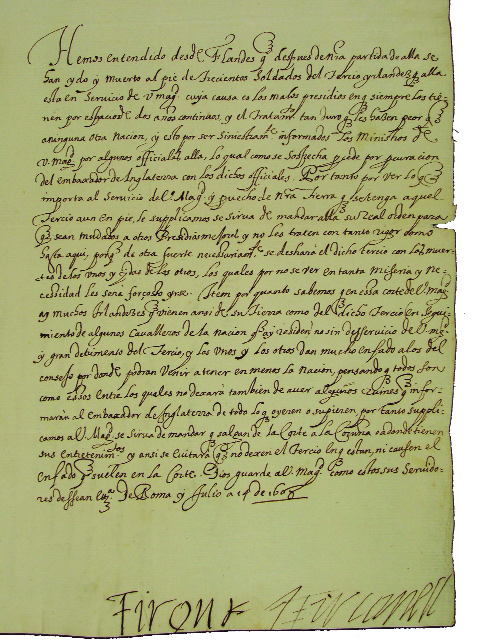 Hemos entendido desde Flandes q̃ despues de nr̃a partida de alla se
han ydo y muerto al pie de trecientos soldados del Tercio yrlandes q̃ alla
esta en servicio de V. mag.ᵈ cuya causa es los malos presidios en q̃ siempre los tie-
nen por espacio de dos años continuos, y el tratam.ᵗᵒ tan duro q̃ les hazen peor q̃
a ninguna otra nacion, y esto por ser siniestram.ᵗᵉ informados los Ministros de
V. mag.ᵈ por algunos officiales alla, lo qual como se sospecha procede por
del embaxador de Inglaterra con los dichos officiales. Por tanto por ver lo q̃
importa al servicio de V. Mag.ᵈ y provecho de nr̃a tierra q̃ se tenga aquel
Tercio aun en pie, le supplicamos se sirva de mandar alla su real orden para
q̃ sean mudados a otros Presidios mejores y no les traten con tanto rigor como
hasta aqui, porq̃ de otra suerte necessariam.ᵗᵉ se deshará el dicho tercio con la muer-
te de los unos y ydas de los otros, los quales por no se ver en tanta miseria y ne-
cessidad les será forçoso yrse. Item por quanto sabemos q̃ en essa corte de V. Mag.ᵈ
ay muchos Irlandezes q̃ vienen ansi de su tierra como del dicho Tercio en segui-
miento de algunos Cavalleros de la nacion q̃ ay residen no sin desservicio de V. mag.ᵈ
y gran detrimento del Tercio, y los unos y los otros dan mucho enfado a los del
consejo por donde podran venir a tener en menos la nacion, pensando q̃ todos son
como essos entre los quales no dexará tambien de aver algunos ruines q̃ infor-
marán al embaxador de Inglaterra de todo lo q̃ oyeren o supieren por tanto suppli-
camos a V. Mag.ᵈ se sirva de mandar q̃ salgan de la Corte a la Coruña o adonde tienen
sus entretenim.ᵗᵒˢ y ansi se evitará q̃ no dexen el Tercio en q̃ estan, ni causen el
enfado q̃ suelen en la Corte. Dios guarde a V. Mag.ᵈ como estos sus servido-
res dessean De Roma y Julio a de 1608
Tirone Tirconell